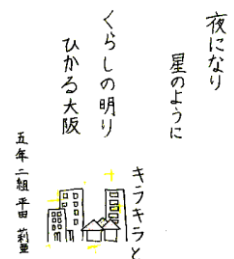 夜になり
星のように
くらしの明り
ひかる大阪
キラキラと
五年二組 平田 莉亜